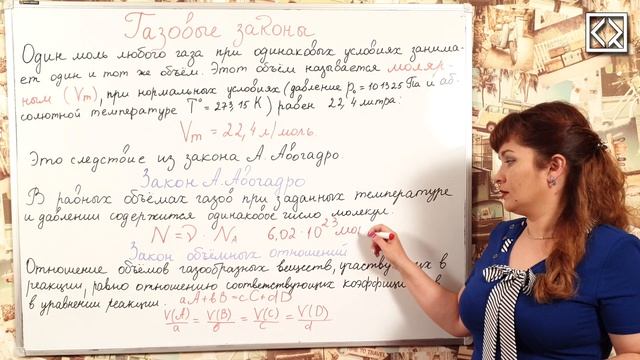 Газовые законы
Один моль любого газа при одинаковых условиях занима-
ет один и тот же объём. Этот объём называется моляр-
ным (Vm), при нормальных условиях (давление p₀ = 101325 Па и аб-
солютной температуре T° = 273,15 К) равен 22,4 литра:
Vm = 22,4 л/моль
Это следствие из закона А. Авогадро.
Закон А. Авогадро
В равных объёмах газов при заданных температуре
и давлении содержится одинаковое число молекул.
N = ν · NA 6,02·10²³ мол
Закон объёмных отношений
Отношение объёмов газообразных веществ, участву их в
реакции, равно отношению соответствующих коэффици в
в уравнении реакции. aA + bB = cC + dD
V(A)/a = V(B)/b = V(C)/c = V(D)/d